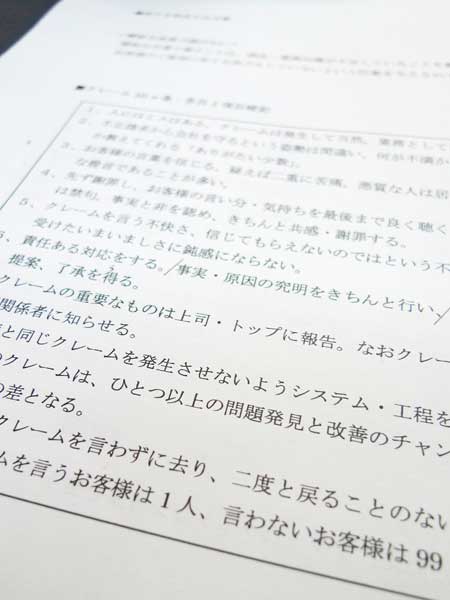 1、人にはミスはある。クレームは発生して当然。業務として
う不正請求から会社を守るという姿勢は間違い。何が不満か
が教えてくれる「ありがたい少数」。
3、お客様の言葉を信じる。疑えば二重に苦痛。悪質な人は居
な教えであることが多い。
4、先ず謝罪し、お客様の言い分・気持ちを最後まで良く聴く
は禁句。事実と非を認め、きちんと共感・謝罪する。
5、クレームを言う不快さ、信じてもらえないのではという不
受けたいまいましさに鈍感にならない。
6、責任ある対応をする。事実・原因の究明をきちんと行い、
提案、了承を得る。
クレームの重要なものは上司・トップに報告。なおクレー
関係者に知らせる。
と同じクレームを発生させないようシステム・工程を
のクレームは、ひとつ以上の問題発見と改善のチャン
の差となる。
クレームを言わずに去り、二度と戻ることのない
ムを言うお客様は1人、言わないお客様は99